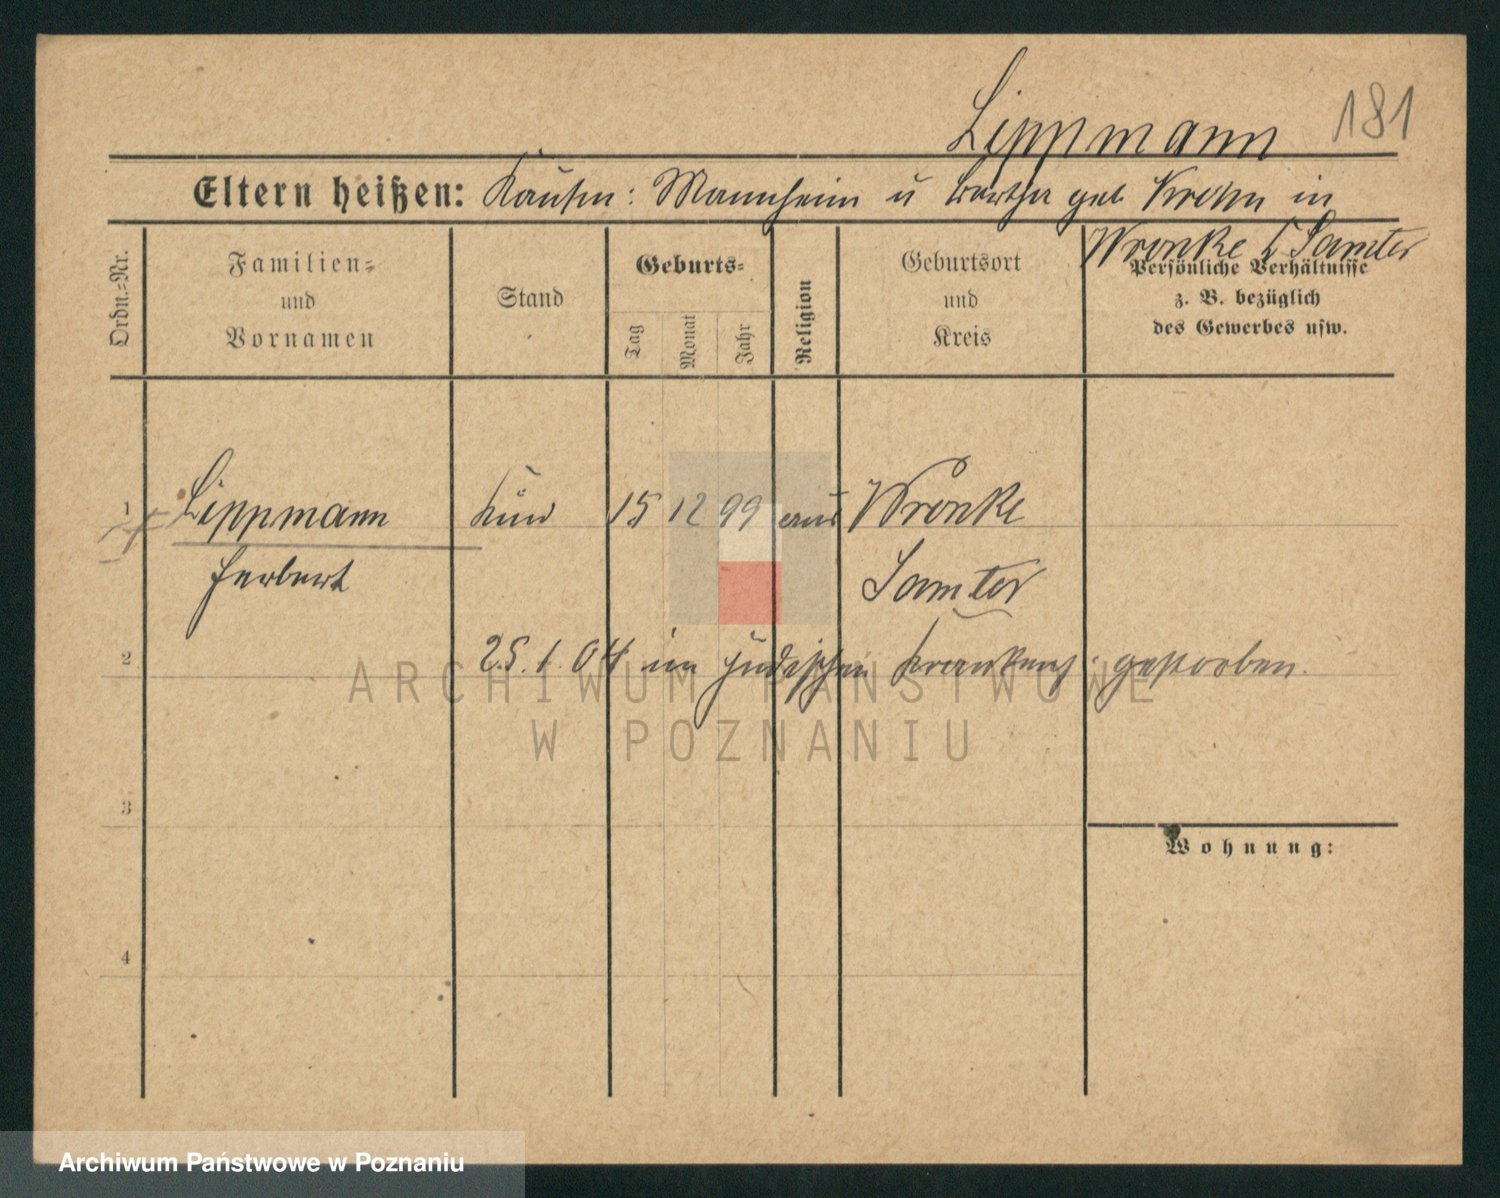 Lippmann 181
Eltern heißen: Kaufm: Mannheim u Bertha geb Krohn in
Wronke Samter
Ordn.-Nr.
Familien-
und
Vornamen
Stand
Geburts-
Tag
Monat
Jahr
Religion
Geburtsort
und
Kreis
Persönliche Verhältnisse
z. B. bezüglich
des Gewerbes usw.
1 Lippmann Kind 15 12 99 Wronke
Herbert Samter
2
25. 1. 04 im jüdischen Krankenh. gestorben.
ARCHIWUM PAŃSTWOWE
W POZNANIU
3
Wohnung:
4
Archiwum Państwowe w Poznaniu